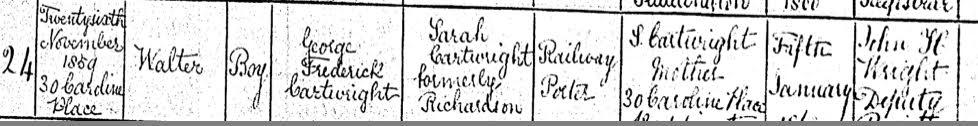 24
Twentysixth
November
1859
30 Caroline
Place
Walter
Boy
George
Frederick
Cartwright
Sarah
Cartwright
formerly
Richardson
Railway
Porter
S. Cartwright
Mother
30 Caroline Place
Fifth
January
John H
Wright
Deputy